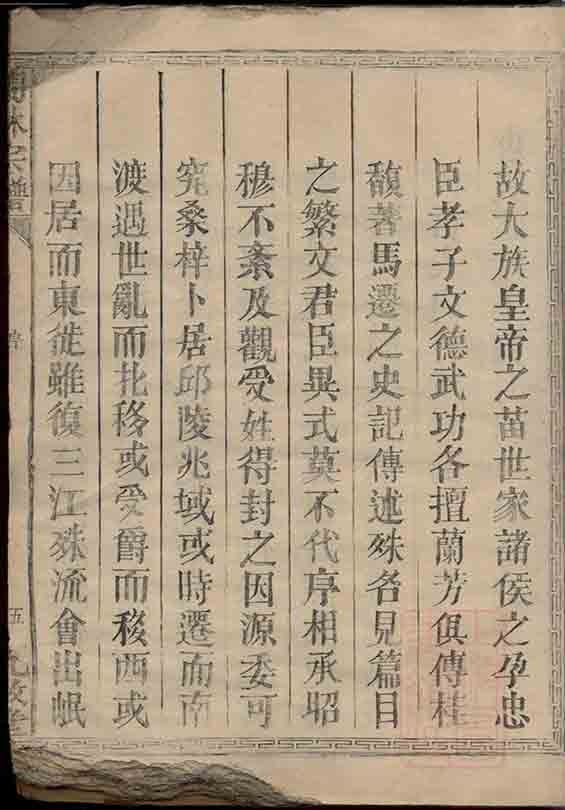 故大族皇帝之苗世家諸侯之孕忠
臣孝子文德武功各擅蘭芳俱傳桂
馥著馬遷之史記傳述殊各見篇目
之繁文君臣異式莫不代序相承昭
穆不紊及觀受姓得封之因源委可
究桑梓卜居邱陵兆域或時遷而南
渡遇世亂而北移或受爵而移西或
因居而東徙雖復三江殊流會出岷
林宗譜
五